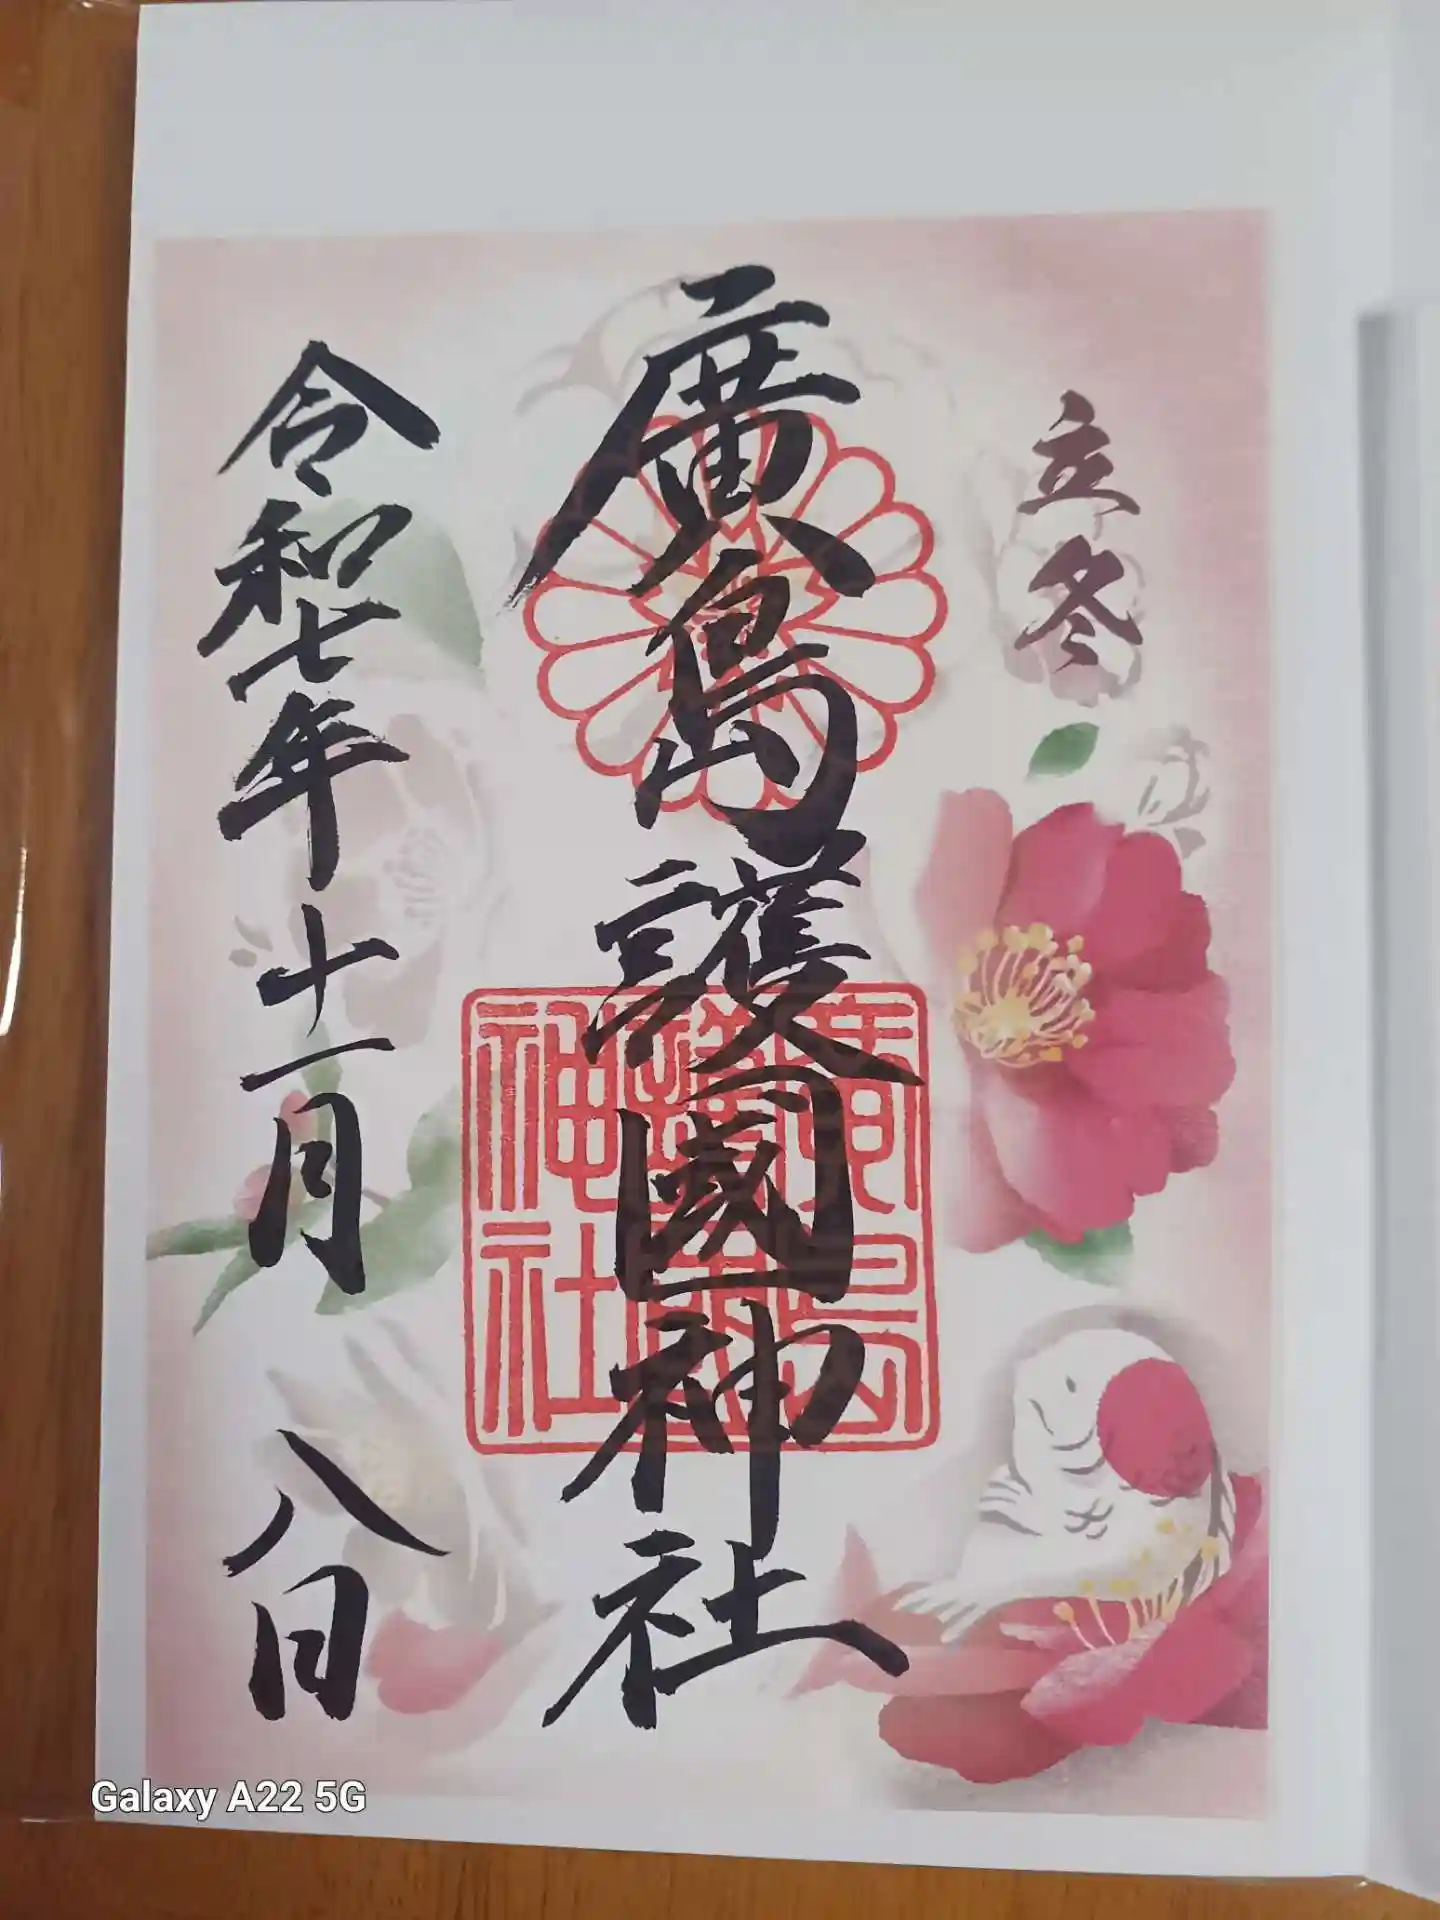 立冬
廣島護國神社
令和七年十一月八日
廣島
護國
神社
Galaxy A22 5G